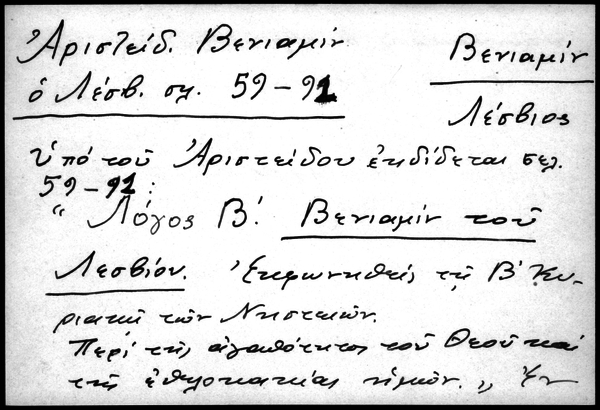 Ἀριστείδ. Βενιαμίν
ὁ Λέσβ. σελ. 59-91
Βενιαμίν
Λέσβιος
Ὑπό τοῦ Ἀριστείδου ἐκδίδεται σελ.
59-91:
"Λόγος Β΄. Βενιαμίν τοῦ
Λεσβίου. Ἐκφωνηθείς τῇ Β΄ Κυ-
ριακῇ τῶν Νηστειῶν.
Περί τῆς ἀγαθότητος τοῦ Θεοῦ καί
τῆς ἐθελοκακίας ἡμῶν." Ἐν